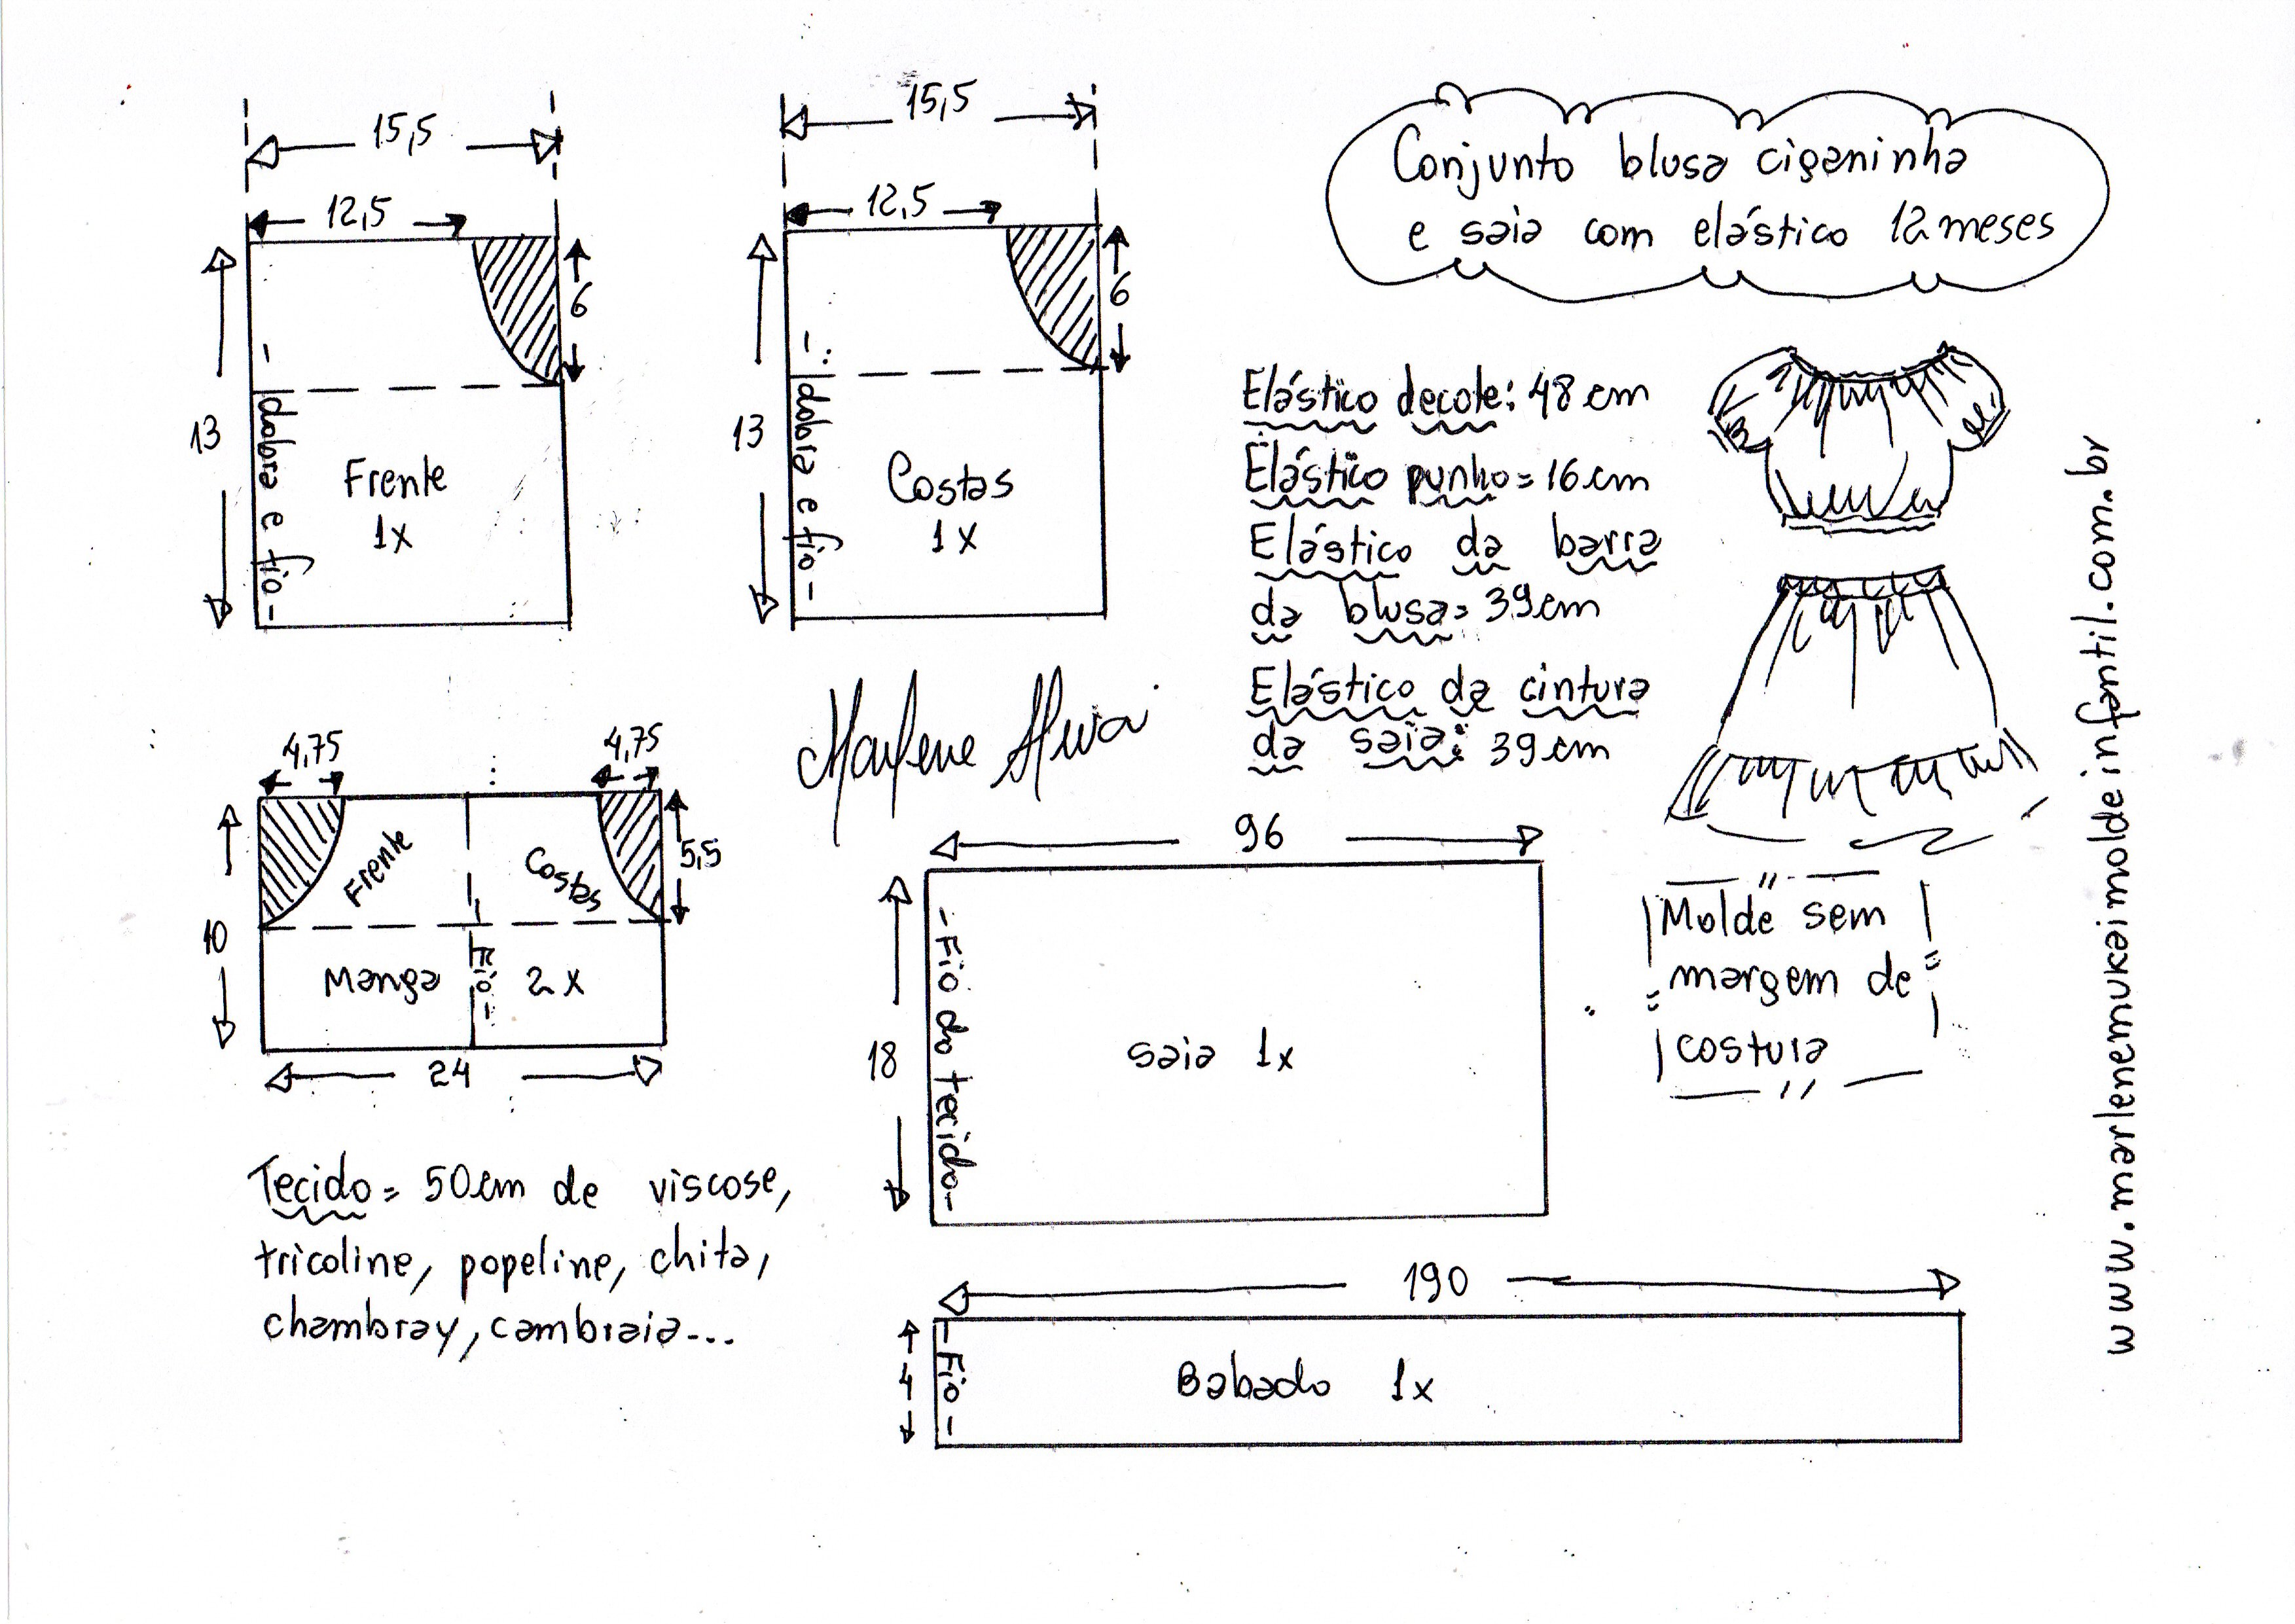 Conjunto blusa ciganinha
e saia com elástico 12 meses
15,5
12,5
6
13
dobra e fio
Frente
1x
15,5
12,5
6
13
dobra e fio
Costas
1x
Elástico decote: 48 cm
Elástico punho = 16 cm
Elástico da barra
da blusa = 39 cm
Elástico da cintura
da saia: 39 cm
4,75
4,75
5,5
10
Frente
Costas
Manga
Fio
2x
24
Marlene
96
18
Fio do tecido
saia 1x
Molde sem
margem de
costura
Tecido = 50 cm de viscose,
tricoline, popeline, chita,
chambray, cambraia...
190
4
Fio
Babado 1x
www.marlenemukaimoldeinfantil.com.br